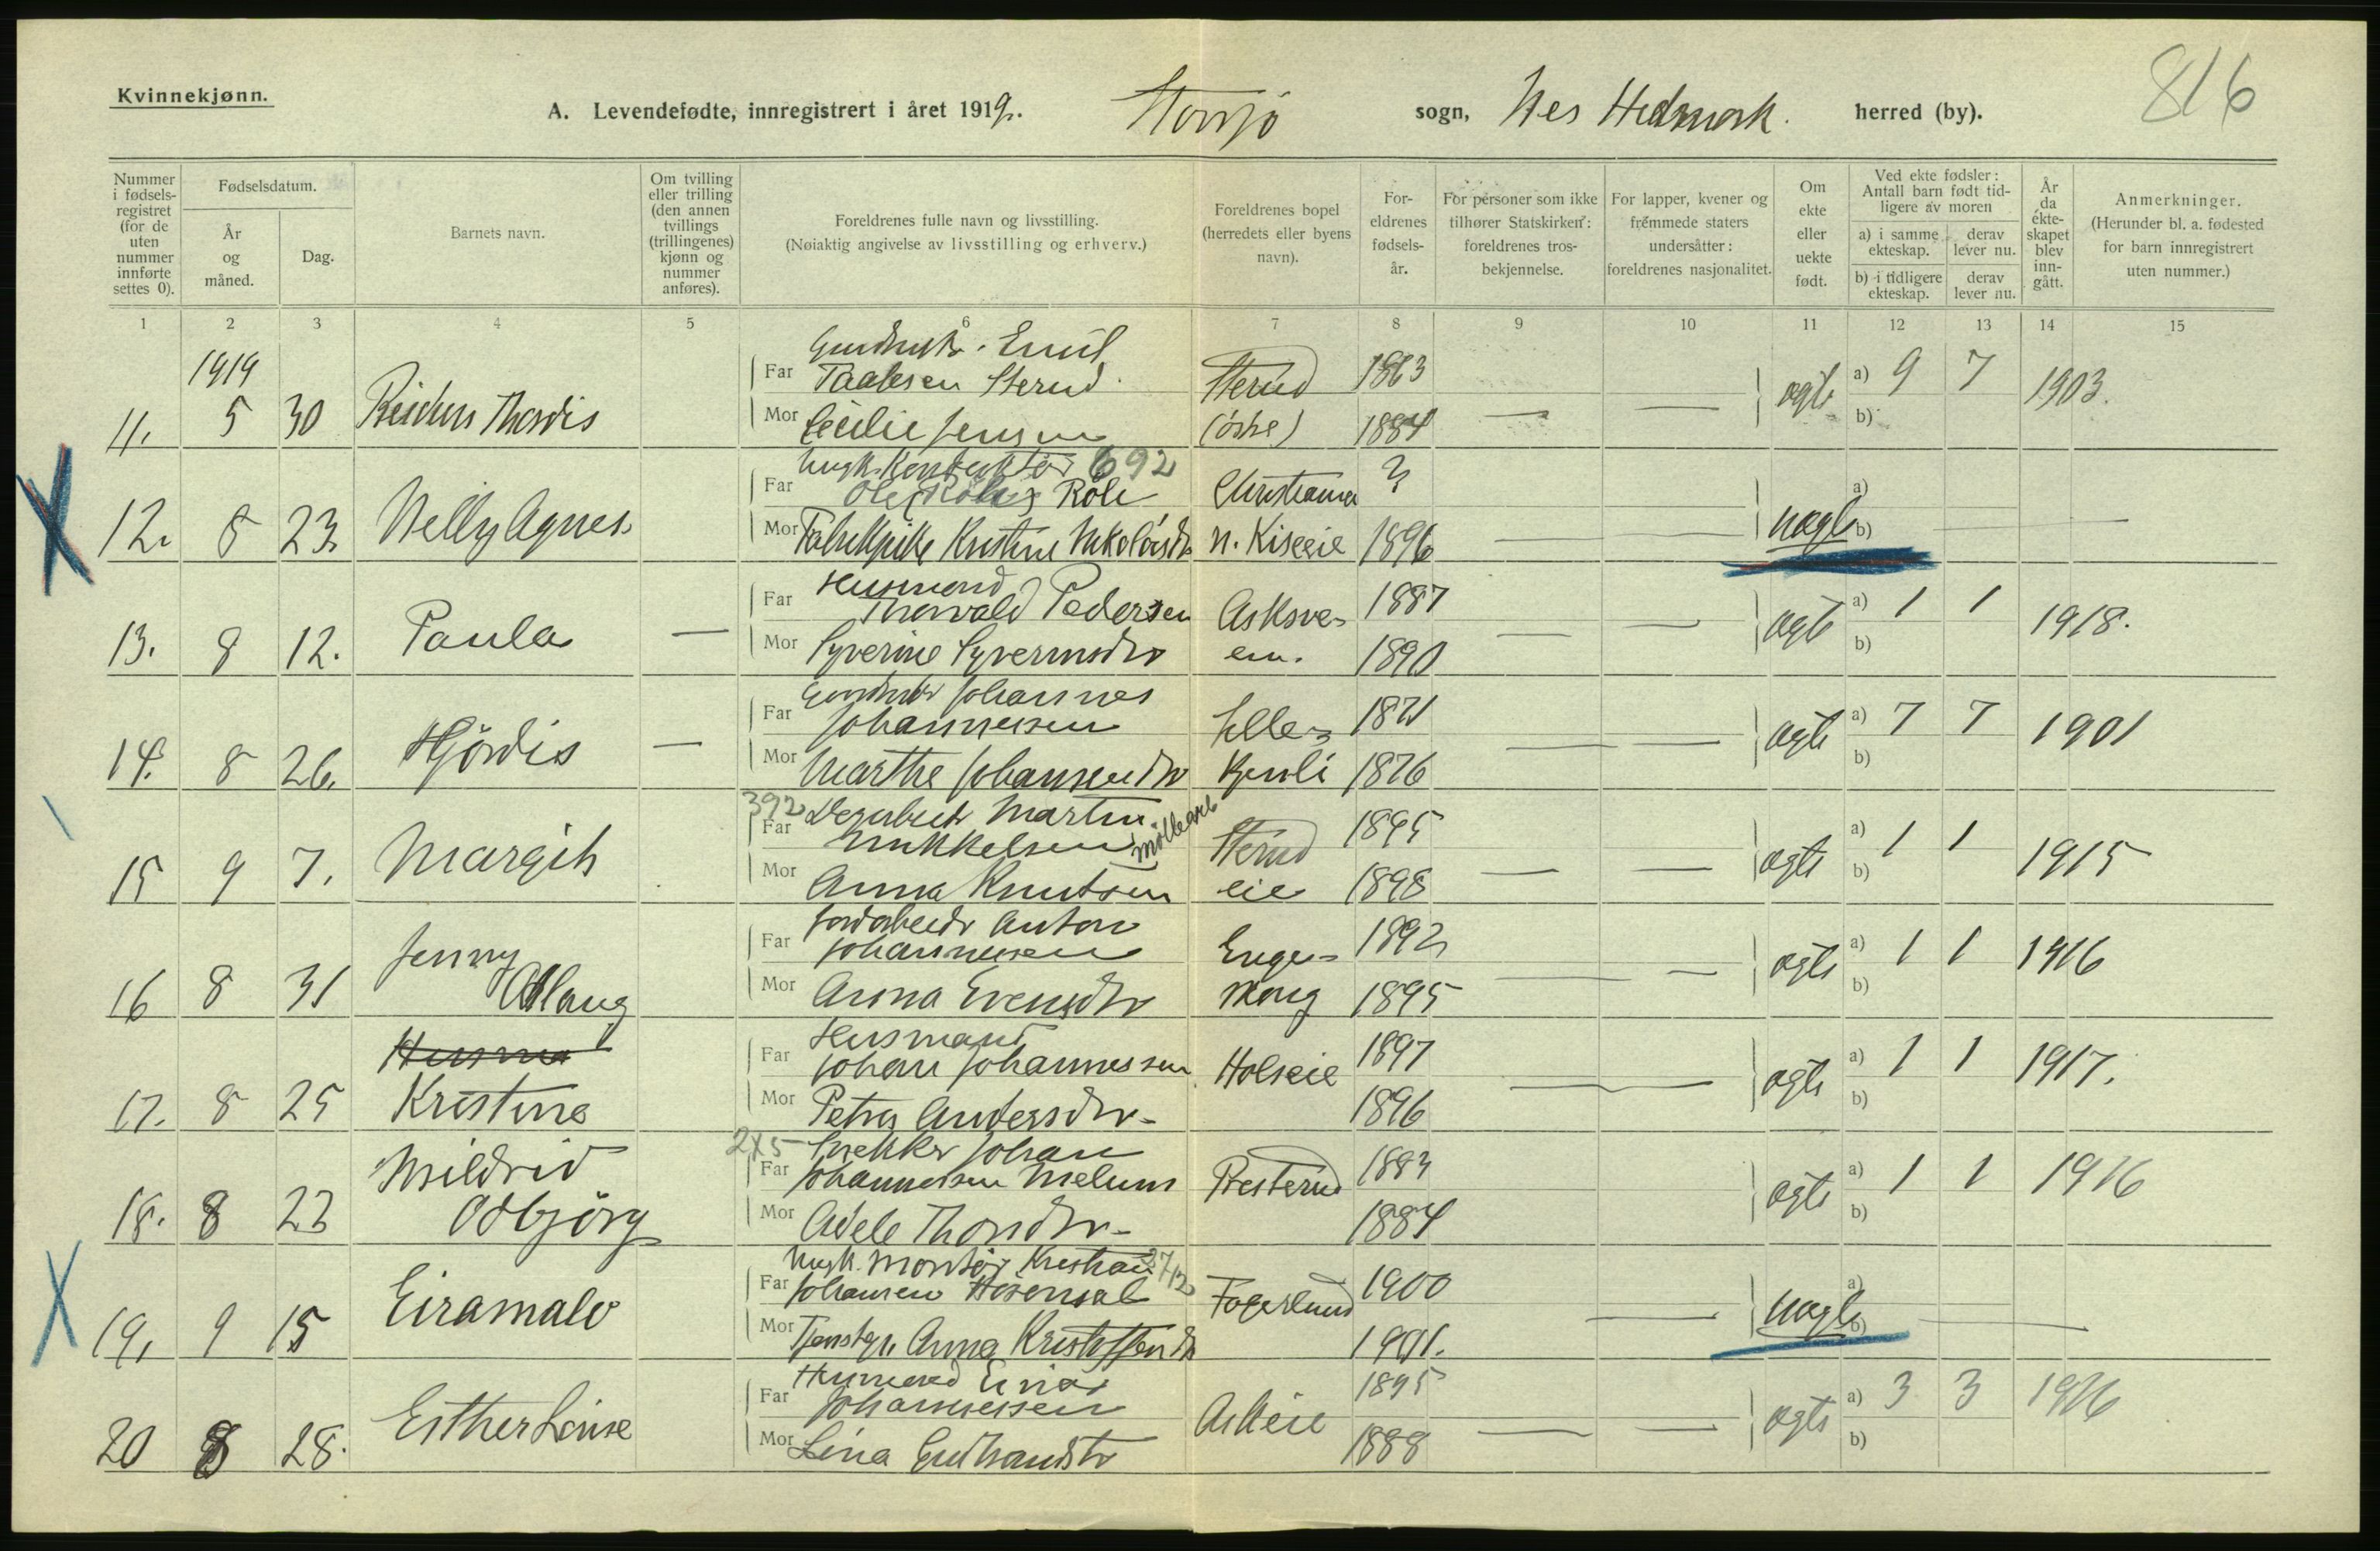 Kvinnekjønn.
816
A. Levendefødte, innregistrert i året 1919. Stavsjø sogn, Nes Hedmark. herred (by).
Nummer i fødsels-registret (for de uten nummer innførte settes 0).
Fødselsdatum.
År og måned.
Dag.
Barnets navn.
Om tvilling eller trilling (den annen tvillings (trillingenes) kjønn og nummer anføres).
Foreldrenes fulle navn og livsstilling.
(Nøiaktig angivelse av livsstilling og erhverv.)
Foreldrenes bopel (herredets eller byens navn).
For-eldrenes fødsels-år.
For personer som ikke tilhører Statskirken: foreldrenes tros-bekjennelse.
For lapper, kvener og fremmede staters undersåtter: foreldrenes nasjonalitet.
Om ekte eller uekte født.
Ved ekte fødsler: Antall barn født tid-ligere av moren
a) i samme ekteskap.
derav lever nu.
b) i tidligere ekteskap.
derav lever nu.
År da ekte-skapet blev inn-gått.
Anmerkninger.
(Herunder bl. a. fødested for barn innregistrert uten nummer.)
1 2 3 4 5 6 7 8 9 10 11 12 13 14 15
1919
Emil
Far Sterud Sterud 1863 a) 9 7
11. 5 30 Thordis ægte 1903.
Mor Cecilie Jensen (östre) 1884 b)
692
Far Ole Röli Christiania ? a)
12. 8 23. Nelly Agnes uægte
Mor Kristine N. Kiseeie 1896 b)
Husmand
Far Thorvald Pedersen Asksve- 1887 a) 1 1
13. 8 12. Paula — ægte 1918.
Mor Syverine Syverinsdtr een. 1890 b)
Gaardbr Johannes
Far Johannessen 1871 a) 7 7
14. 8 26. Hjördis — ægte 1901
Mor Marthe Johansendtr 1876 b)
392 Martin
Far Mikkelsen Möllearb Sterud 1895 a) 1 1
15 9 7. Margith ægte 1915
Mor Anna Knutsen eie 1898 b)
Jordarbeidr Anton
Far Johannessen Enge- 1892 a) 1 1
16 8 31 Jenny Aslaug ægte 1916
Mor Anna Evensdtr 1895 b)
Husmand
Far Johan Johannessen Holseie 1897 a) 1 1
17. 8 25 Kristine ægte 1917.
Mor Petra Andersdtr 1896 b)
2x5 Snekker Johan
Far Johannessen Melum Presterud 1883 a) 1 1
18. 8 23 Mildrid Odbjörg ægte 1916
Mor Adele Thorsdtr 1884 b)
Montör Kristian 3712
Far Johansen Fagerlund 1900 a)
19. 9 15 uægte
Mor Tjenstpi. Anna Kristoffersdtr 1901. b)
Husmand Einar
Far Johannessen Askeie 1895 a) 3 3
20 8 28. Esther Lovise ægte 1916
Mor Lina Gudbrandsdtr 1888 b)